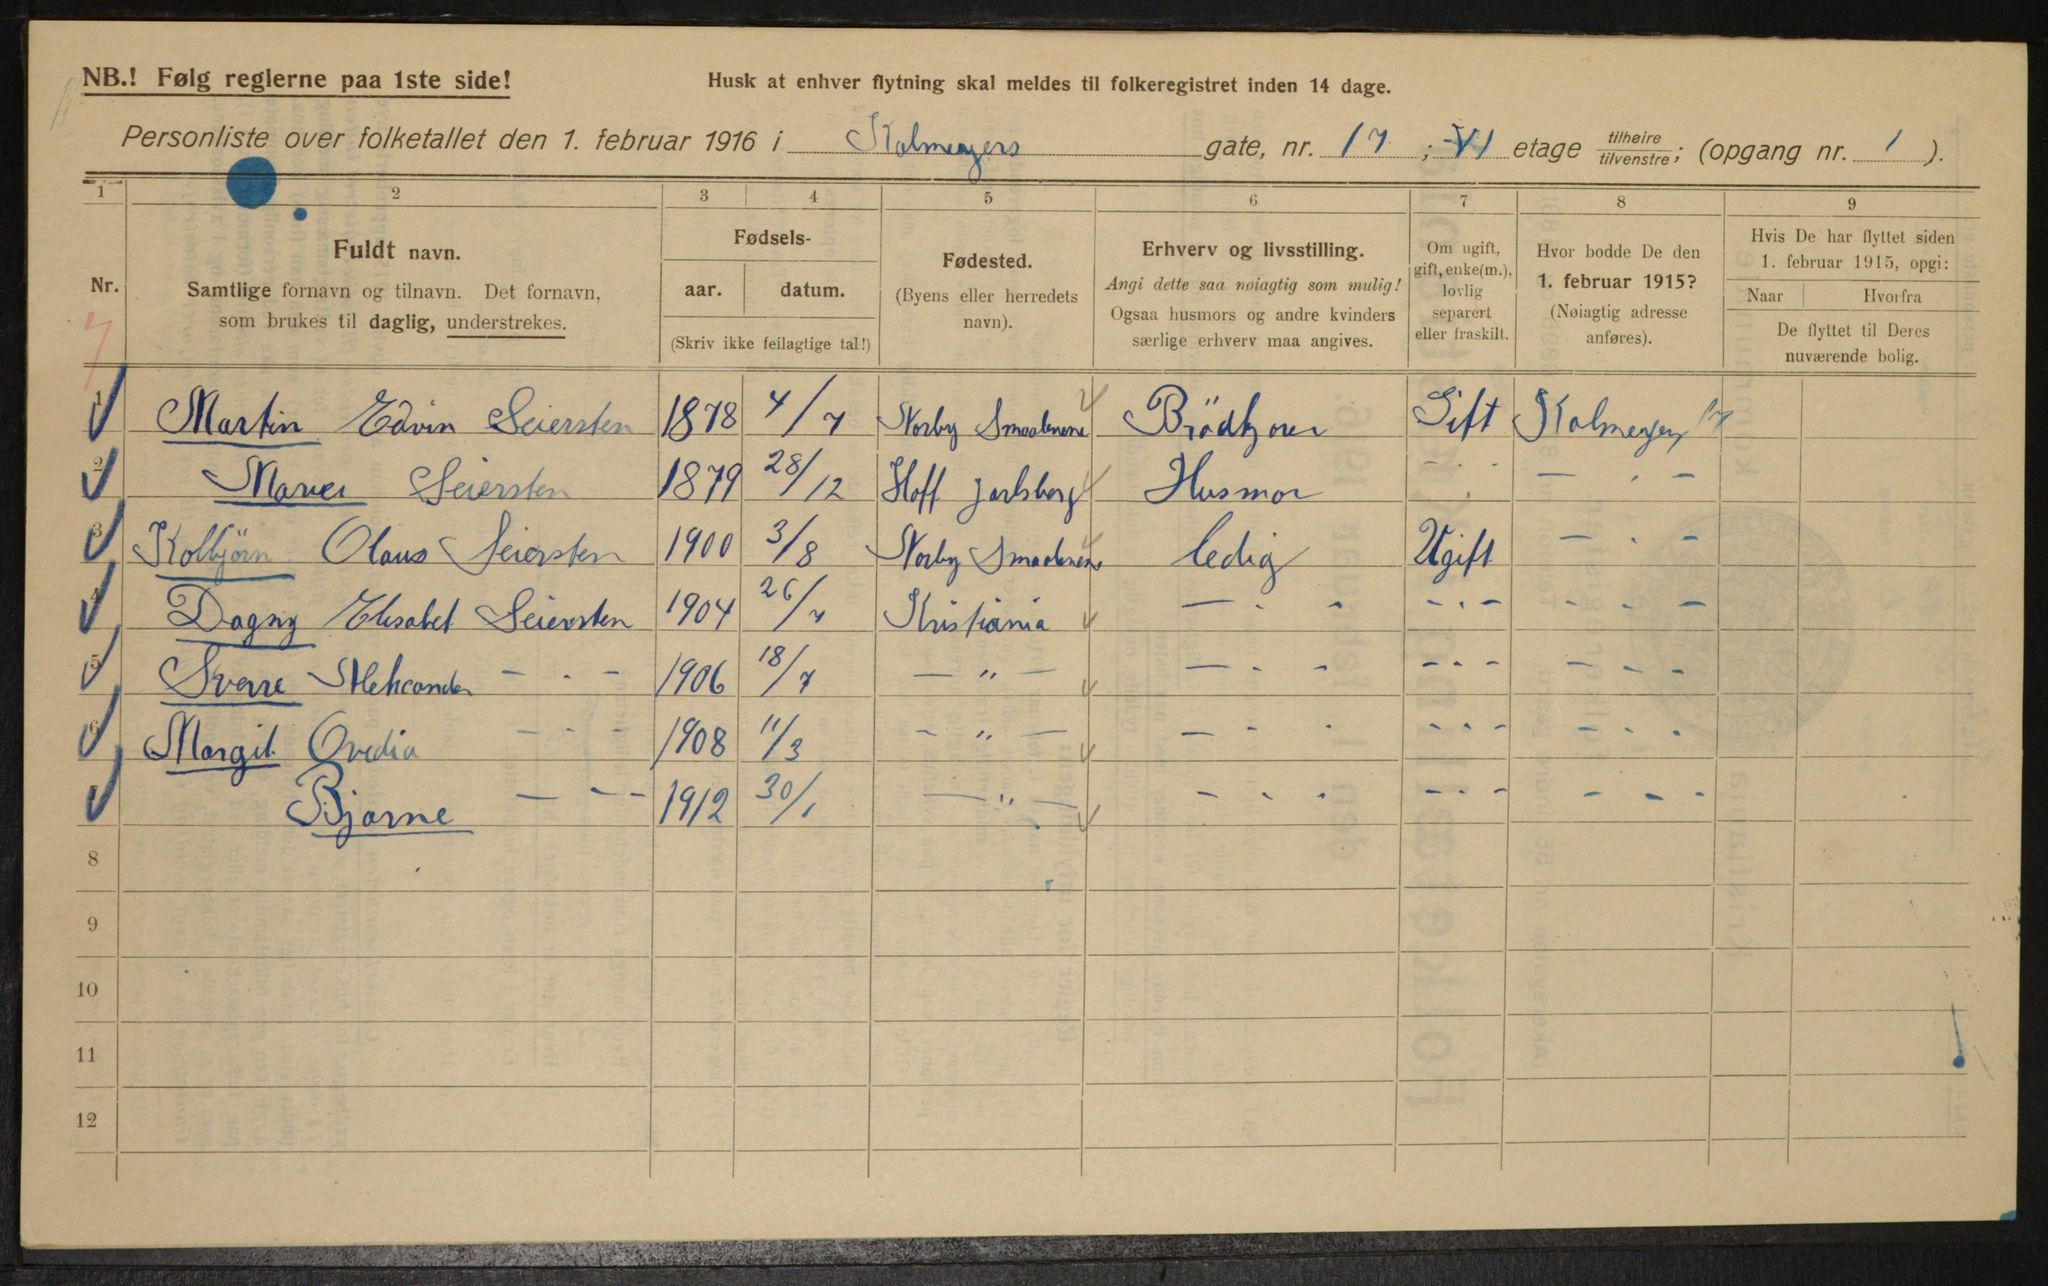 NB.! Følg reglerne paa 1ste side!
Husk at enhver flytning skal meldes til folkeregistret inden 14 dage.
Personliste over folketallet den 1. februar 1916 i Kolmeyers gate, nr. 17 ; VI etage tilhøire/tilvenstre; (opgang nr. 1 ).
1 2 3 4 5 6 7 8 9
Nr.
Fuldt navn.
Samtlige fornavn og tilnavn. Det fornavn,
som brukes til daglig, understrekes.
Fødsels-
aar. datum.
(Skriv ikke feilagtige tal!)
Fødested.
(Byens eller herredets
navn).
Erhverv og livsstilling.
Angi dette saa nøiagtig som mulig!
Ogsaa husmors og andre kvinders
særlige erhverv maa angives.
Om ugift,
gift, enke(m.),
lovlig
separert
eller fraskilt.
Hvor bodde De den
1. februar 1915?
(Nøiagtig adresse
anføres).
Hvis De har flyttet siden
1. februar 1915, opgi:
Naar Hvorfra
De flyttet til Deres
nuværende bolig.
1 Martin Edvin Seiersten 1878 4/7 Norby Smaalenene Brödkjorer Gift Kolmeyer 17
2 Seiersten 1879 28/12 Hoff Jarlsberg Husmor - . - — . -
3 Kolbjörn Olaus Seiersten 1900 3/8 Norby Smaalenene ledig Ugift — . -
4 Dagny Elisabet Seiersten 1904 26/7 Kristiania — - - - - - - - -
5 Sverre Aleksander — - - 1906 18/7 — " — — - - - - - - - -
6 Margit Ovedia — - - 1908 11/3 - " — — - - - - - - - -
Bjarne — - - 1912 30/1 — " — - - - - - - - - -
8
9
10
11
12